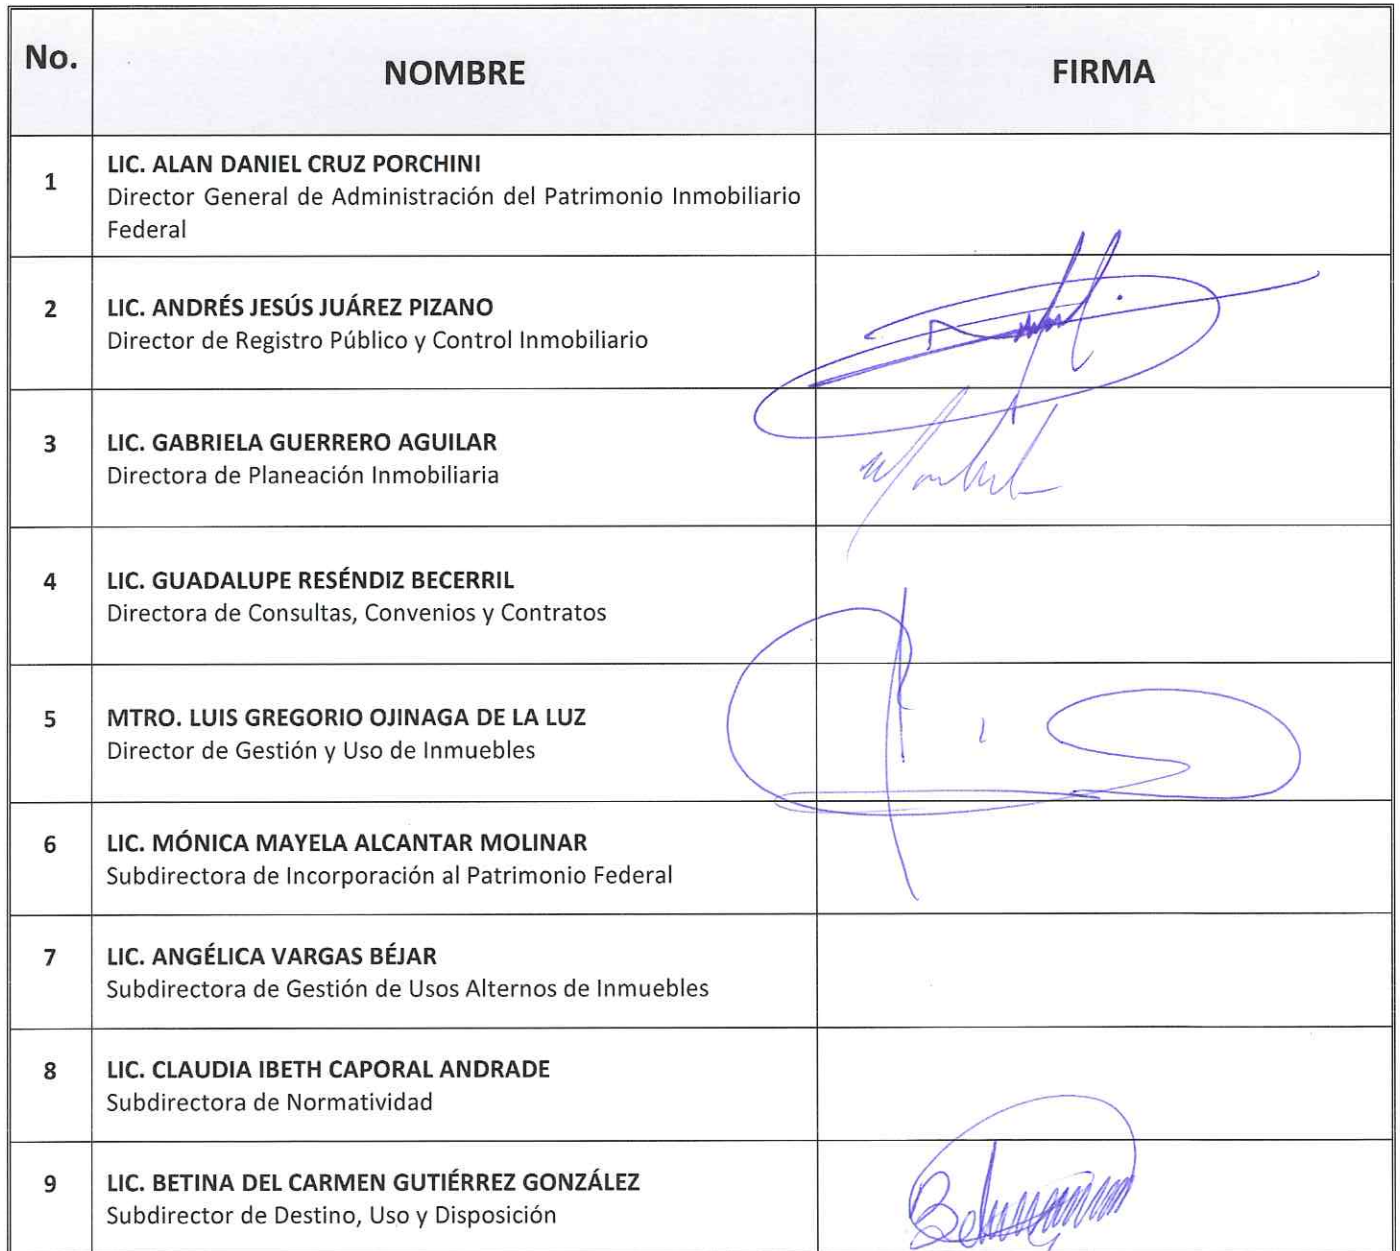 No. NOMBRE FIRMA
1 LIC. ALAN DANIEL CRUZ PORCHINI
Director General de Administración del Patrimonio Inmobiliario
Federal
2 LIC. ANDRÉS JESÚS JUÁREZ PIZANO
Director de Registro Público y Control Inmobiliario
3 LIC. GABRIELA GUERRERO AGUILAR
Directora de Planeación Inmobiliaria
4 LIC. GUADALUPE RESÉNDIZ BECERRIL
Directora de Consultas, Convenios y Contratos
5 MTRO. LUIS GREGORIO OJINAGA DE LA LUZ
Director de Gestión y Uso de Inmuebles
6 LIC. MÓNICA MAYELA ALCANTAR MOLINAR
Subdirectora de Incorporación al Patrimonio Federal
7 LIC. ANGÉLICA VARGAS BÉJAR
Subdirectora de Gestión de Usos Alternos de Inmuebles
8 LIC. CLAUDIA IBETH CAPORAL ANDRADE
Subdirectora de Normatividad
9 LIC. BETINA DEL CARMEN GUTIÉRREZ GONZÁLEZ
Subdirector de Destino, Uso y Disposición